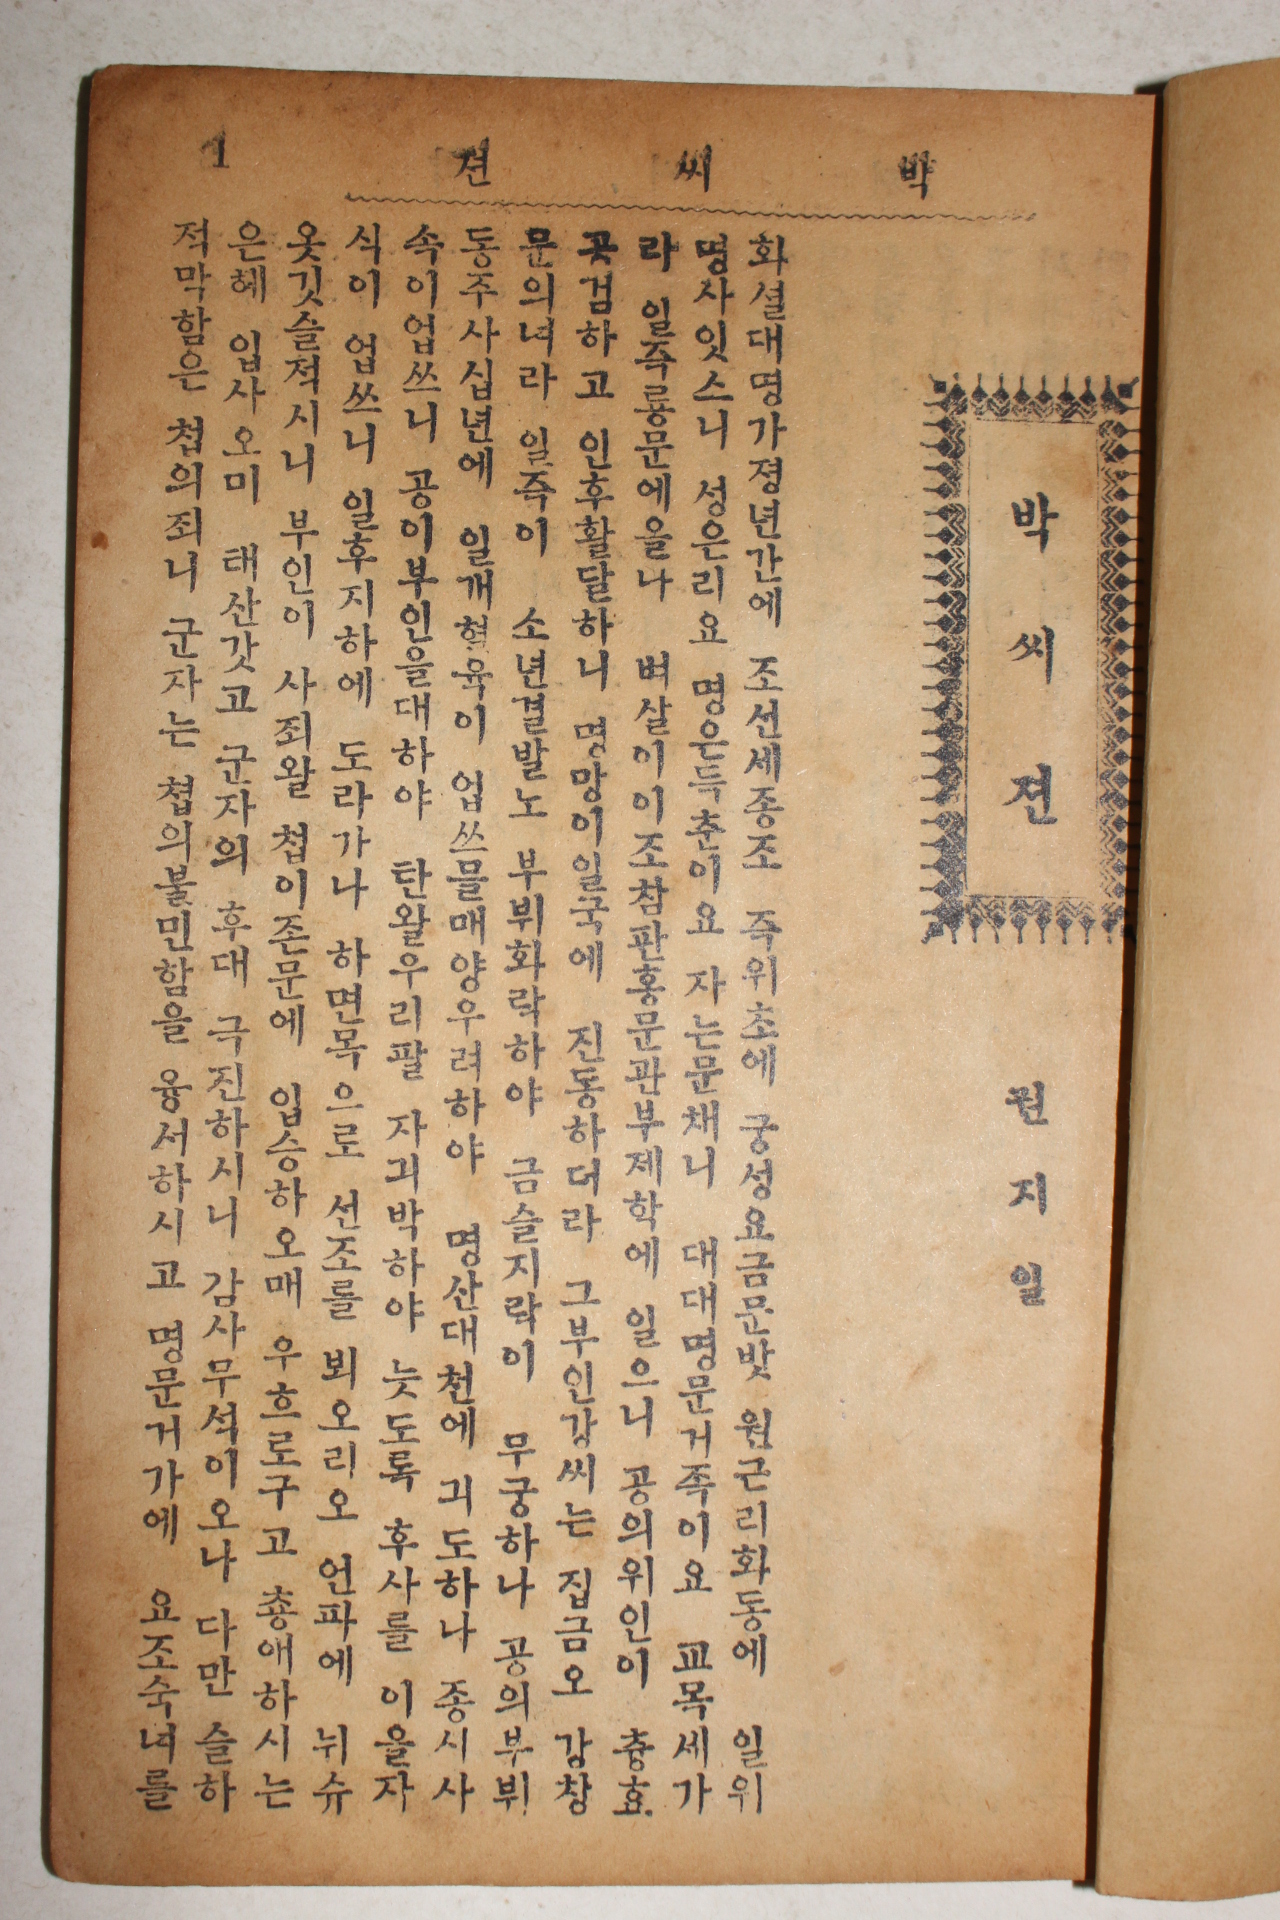 박씨젼 1
박씨젼
권지일
화셜대명가졍년간에 조선세종조 즉위초에 궁성요금문밧 원근리화동에 일위
명사잇스니 성은리요 명은득춘이요 자는문채니 대대명문거족이요 교목세가
라 일즉룡문에올나 벼살이이조참판홍문관부제학에 일으니 공의위인이 츙효
곳검하고 인후활달하니 명망이일국에 진동하더라 그부인강씨는 집금오 강창
문의녀라 일즉이 소년결발노 부뷔화락하야 금슬지락이 무궁하나 공의부뷔
동주사십년에 일개혈육이 업쓰믈매양우려하야 명산대천에 긔도하나 종시사
속이업쓰니 공이부인을대하야 탄왈우리팔 자긔박하야 늣도록 후사를 이을자
식이 업쓰니 일후지하에 도라가나 하면목으로 선조를 뵈오리오 언파에 뉘슈
옷깃슬적시니 부인이 사죄왈 첩이존문에 입승하오매 우흐로구고 춍애하시는
은혜 입사오미 태산갓고 군자의 후대 극진하시니 감사무석이오나 다만 슬하
적막함은 첩의죄니 군자는 첩의불민함을 용서하시고 명문거가에 요조숙녀를